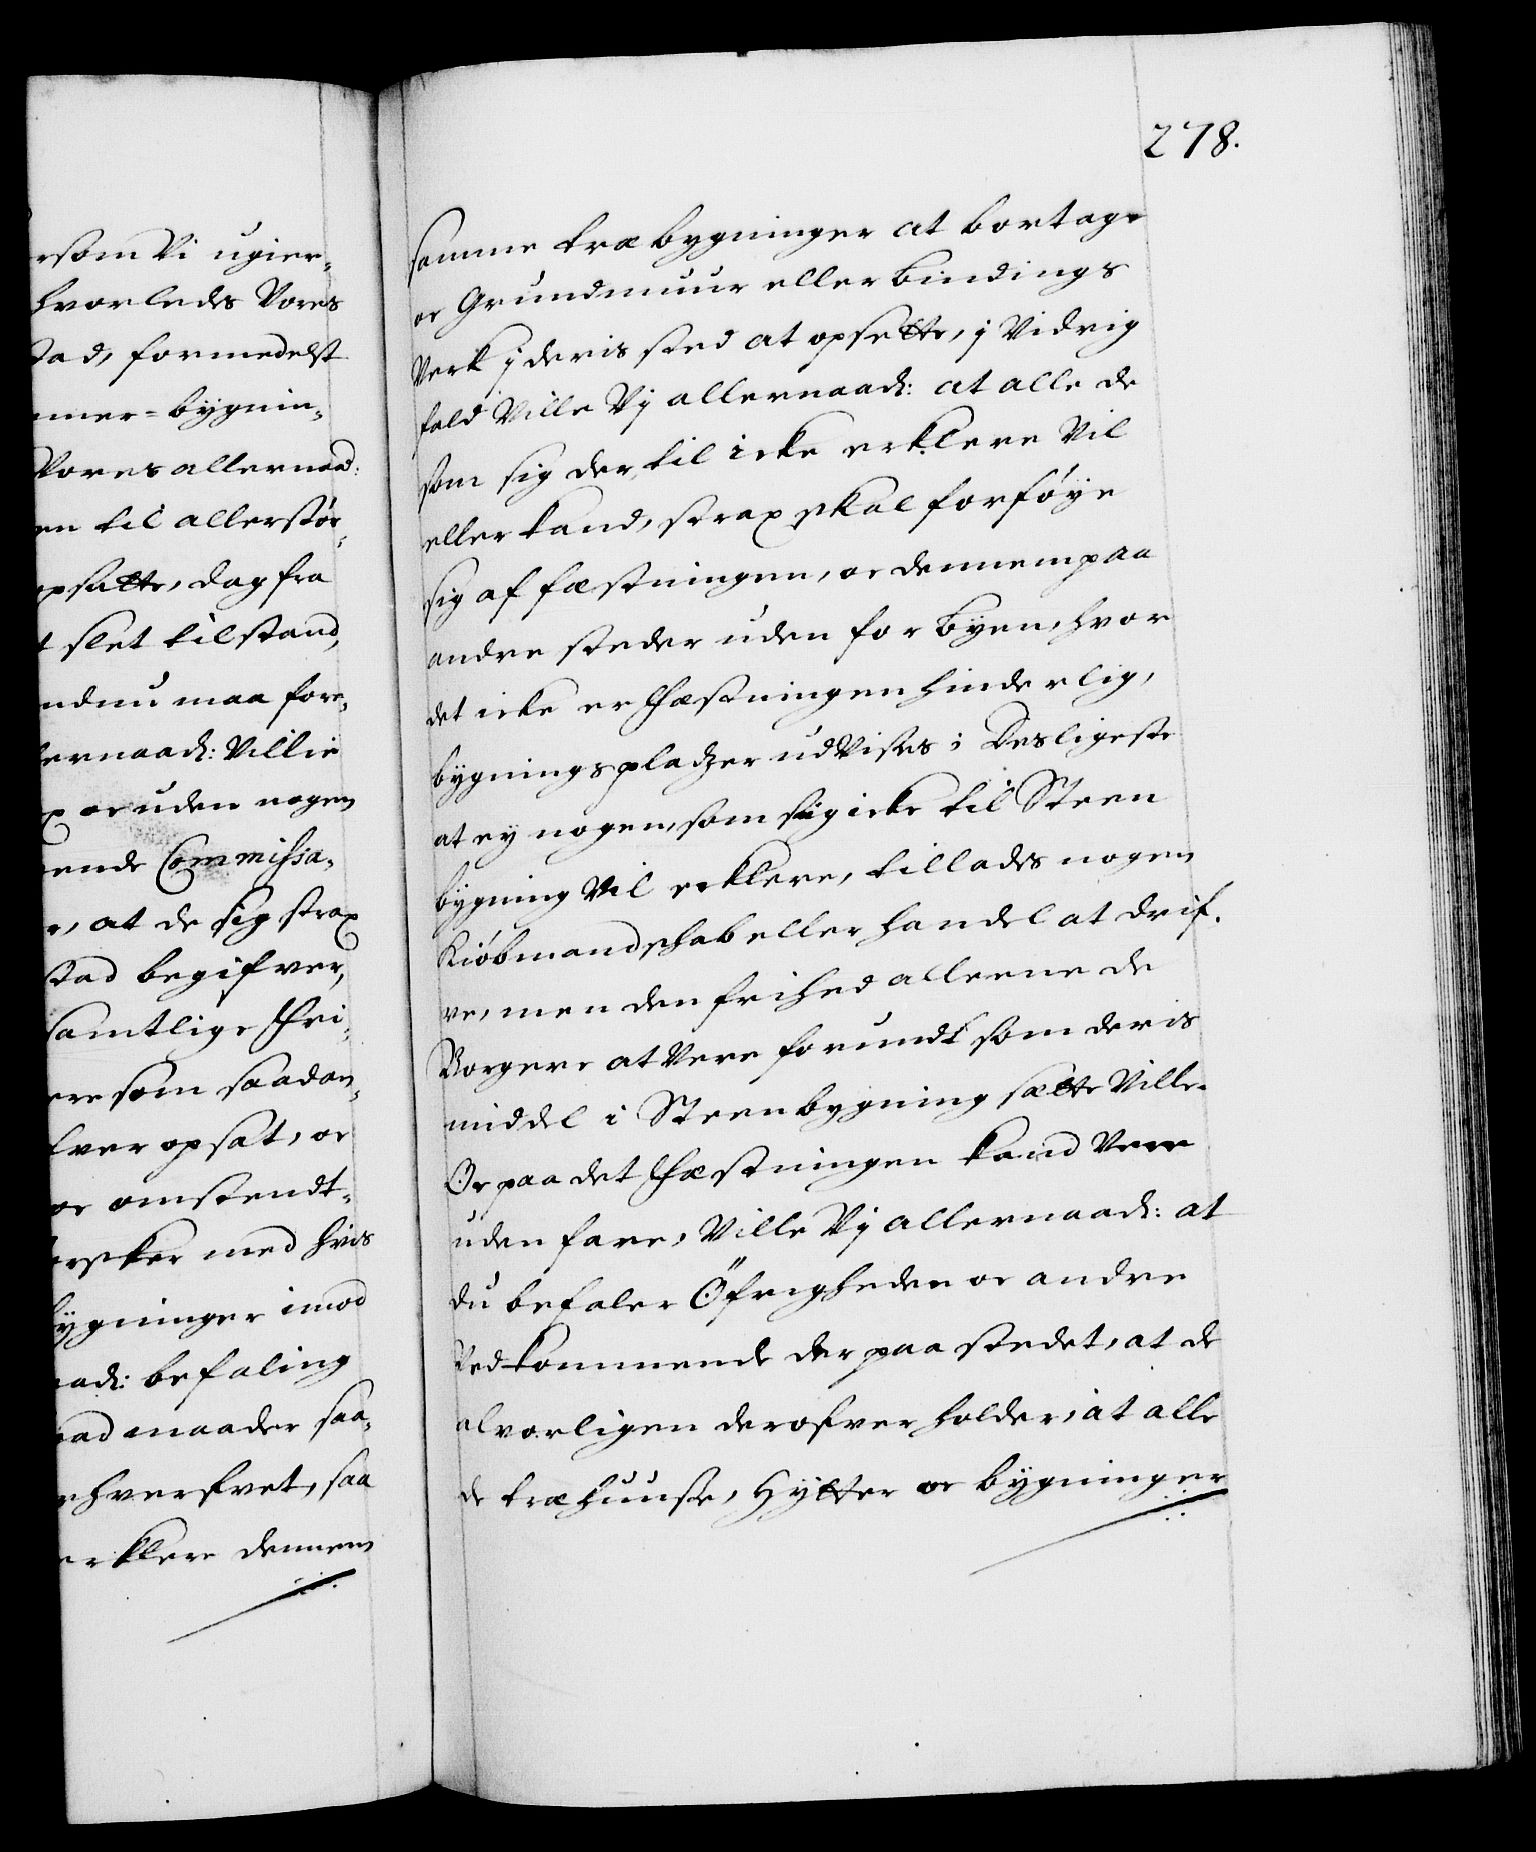 rsom Vi ugier-
hvorledes Vores
stad, formedelst
mmer-bygnin-
Vores allernaad:
en til allerstør-
opsætte, dag fra
t slet tilstand,
endnu maa fore-
lernaad: Villie
oc uden nogen
ende Commissa-
r, at de sig strax
stad begifver,
samtlige Fri-
ere som saadan-
lver opsat, oc
oc omstendt-
ersker med hvis
bygninger imod
aad: befaling
maader saa-
erhverfvet, saa
erklere dennem
278.
samme træbygninger at bortage
oc Grundmuur eller bindings
Verk j deris sted at opsette, j Vidrig
fald Ville Vj allernaad: at alle de
som sig der til icke erklere Vil
eller kand, strax skal forføye
sig af fæstningen, oc dennem paa
andre steder uden for Byen, hvor
det icke er Fæstningen hinderlig,
bygningspladzer udvises; Desligeste
at ey nogen, som sig icke til Steen
bygning Vil erklere, tillades nogen
Kiøbmandskab eller handel at drif-
ve, men den frihed alleene de
Borgere at Vere forundt som deris
middel i Steenbygning sætte Ville.
Oc paa det Fæstningen kand Vere
uden fare, Ville Vj allernaad: at
du befaler Öfrigheden oc andre
Vedkommende der paa stedet, at de
alvorligen derofver holder, at alle
de træhuuse, Hytter oc bygninger